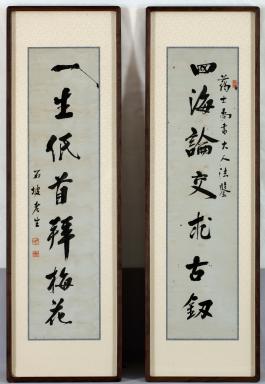 四海論交求古釼
葯士尚書大人法鑒
一生低首拜梅花
石坡老生